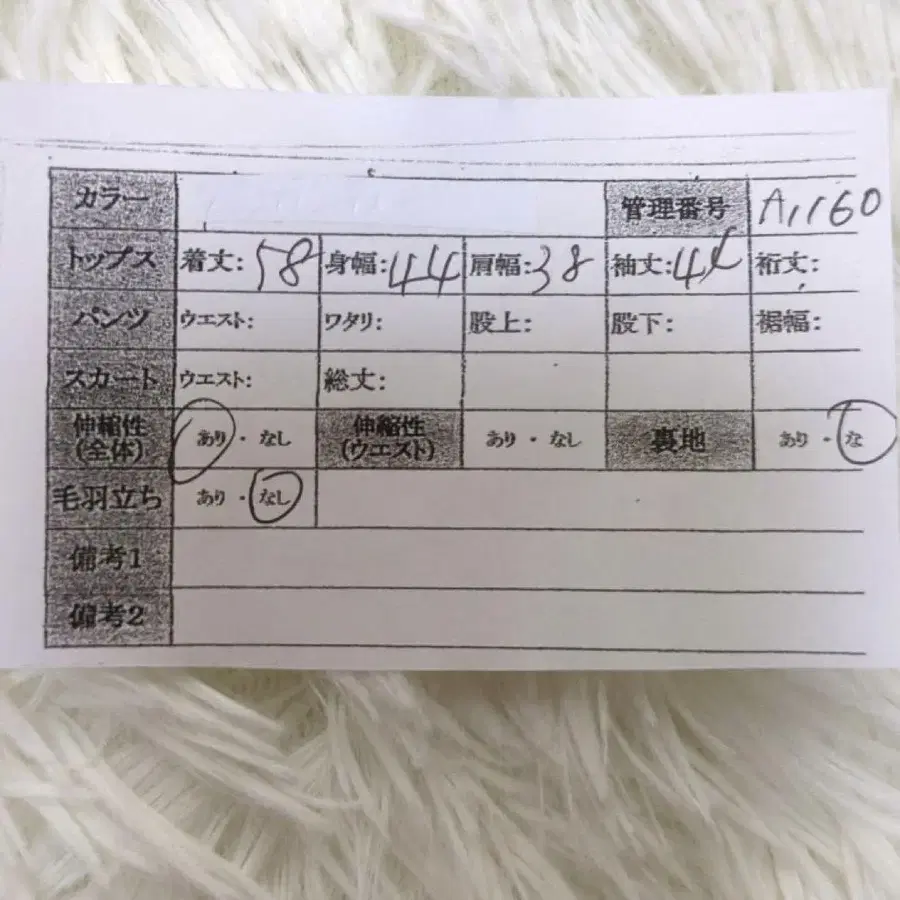 カラー 管理番号 A1160
トップス 着丈:58 身幅:44 肩幅:38 袖丈:44 裄丈:
パンツ ウエスト: ワタリ: 股上: 股下: 裾幅:
スカート ウエスト: 総丈:
伸縮性
(全体) あり・なし 伸縮性
(ウエスト) あり・なし 裏地 あり・な
毛羽立ち あり・なし
備考1
備考2